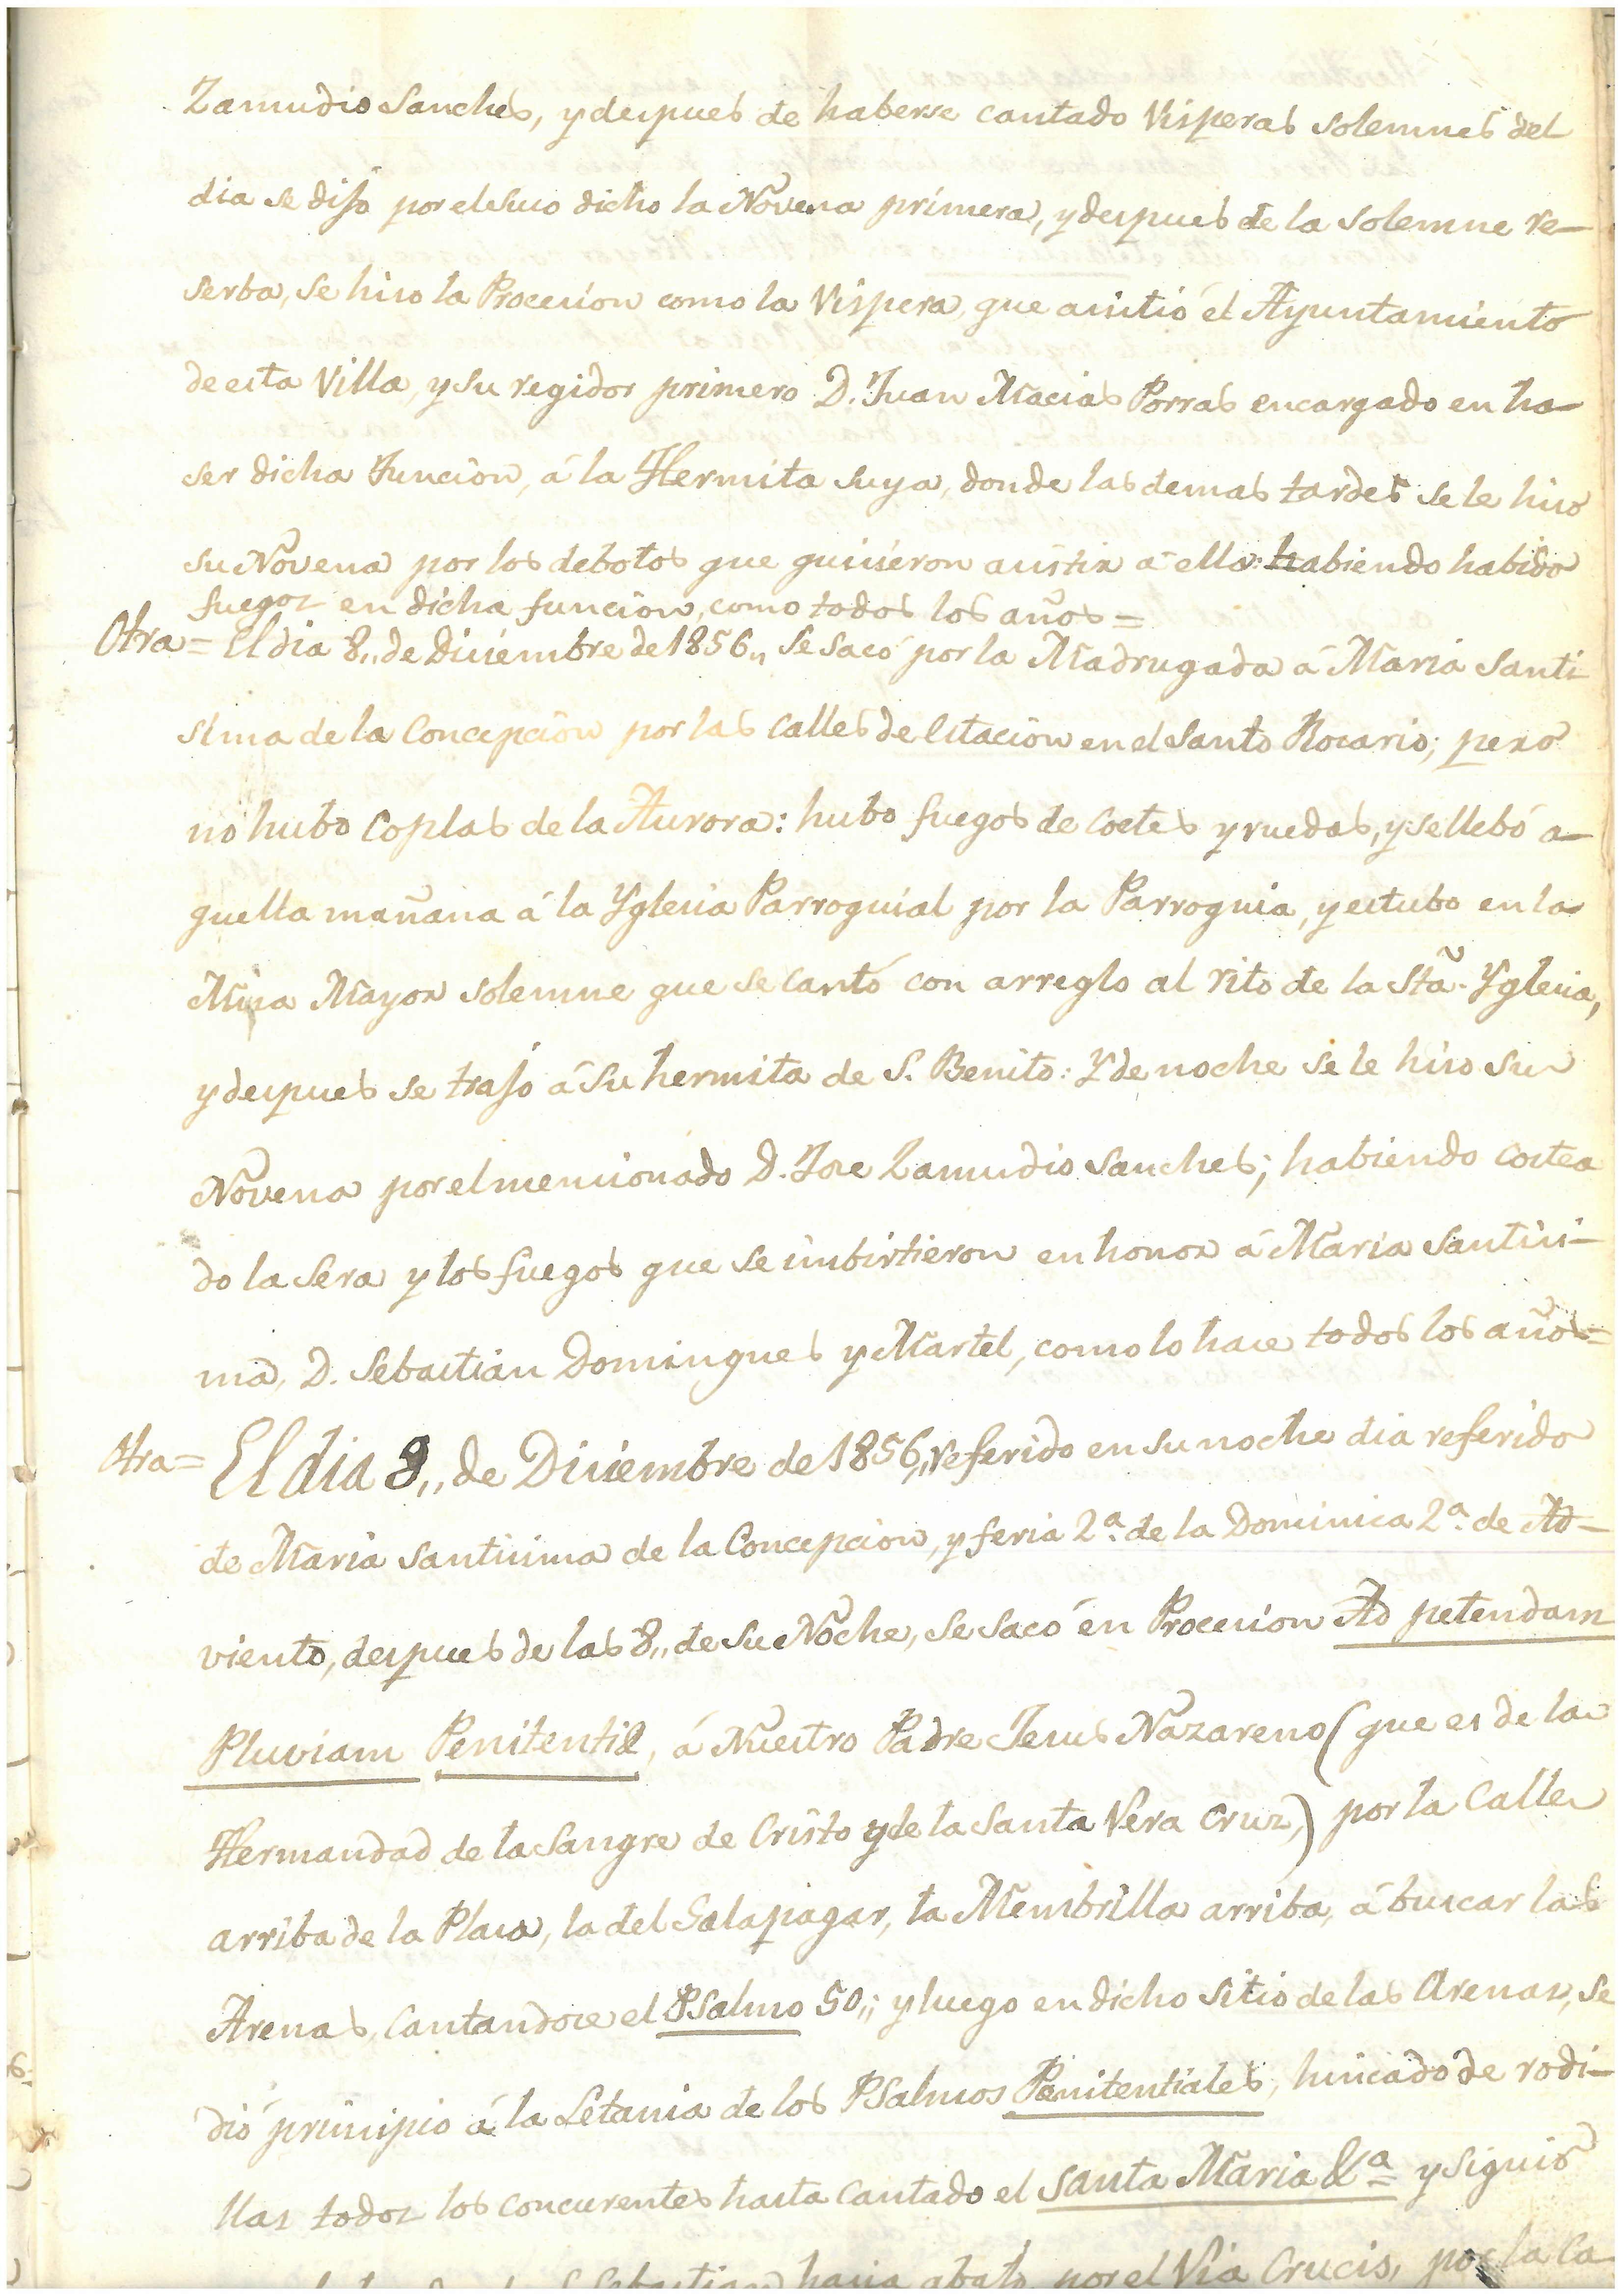 Zamudio Sanches, y despues de haberse cantado Visperas solemnes del
dia se dijo por el suso dicho la Novena primera, y despues de la solemne re-
serba, se hiso la Procesion como la Vispera, que asistió el Ayuntamiento
de esta Villa, y su regidor primero D. Juan Macias Porras encargado en ha-
ser dicha funcion, á la Hermita suya, donde las demas tardes se le hiso
su Novena por los debotos que quisieron asistir á ella: habiendo habido
fuegos en dicha funcion, como todos los años=
Otra= El dia 8,, de Disiembre de 1856,, se sacó por la Madrugada á Maria Santi
sima de la Concepcion por las calles de Estacion en el Santo Rosario; pero
no hubo Coplas de la Aurora: hubo fuegos de Coetes y ruedas, y se llebó a-
quella mañana á la Yglesia Parroquial por la Parroquia, y estubo en la
Misa Mayor solemne que se cantó con arreglo al rito de la Stã. Yglesia,
y despues se trajo á su hermita de S. Benito: Y de noche se le hiso su
Novena por el mensionado D. Jose Zamudio Sanches; habiendo costea
do la sera y los fuegos que se imbirtieron en honor á Maria Santisi-
ma, D. Sebastian Domingues y Martel, como lo hace todos los años=
Otra= El dia 8,, de Disiembre de 1856,, referido en su noche dia referido
de Maria Santisima de la Concepcion, y feria 2ª. de la Dominica 2ª. de Ad-
viento, despues de las 8,, de su Noche, se sacó en Procesion Ad petendam
Pluviam Penitentiæ, á Nuestro Padre Jesus Nazareno (que es de la
Hermandad de la Sangre de Cristo y de la Santa Vera Cruz,) por la Calle
arriba de la Plasa, la del Galapagar, la Membrilla arriba, á buscar las
Arenas, Cantandose el Psalmo 50,,; y luego en dicho sitio de las Arenas, se
dió prinsipio á la Letania de los Psalmos Penitentiales, hincado de rodi-
llas todos los concurentes hasta cantado el Santa Maria &ª y siguió
Sebastian hasia abajo por el Via Crucis, por la Ca